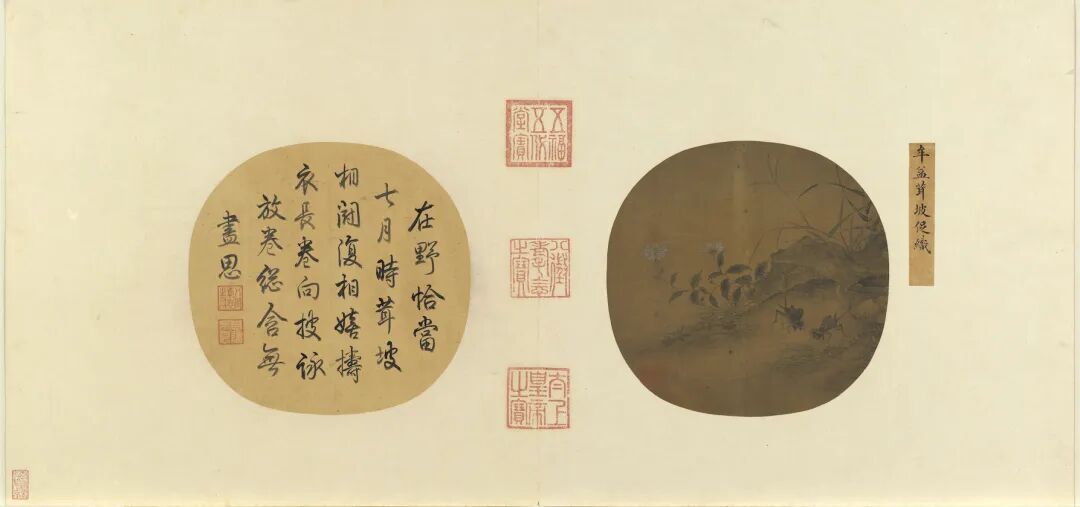 牟益茸坡促織
五福五代堂寶
八徵耄念之寶
太上皇帝之寶
在野恰當
七月時茸坡
相闘復相嬉擣
衣長卷向披詠
放卷緫含無
盡思